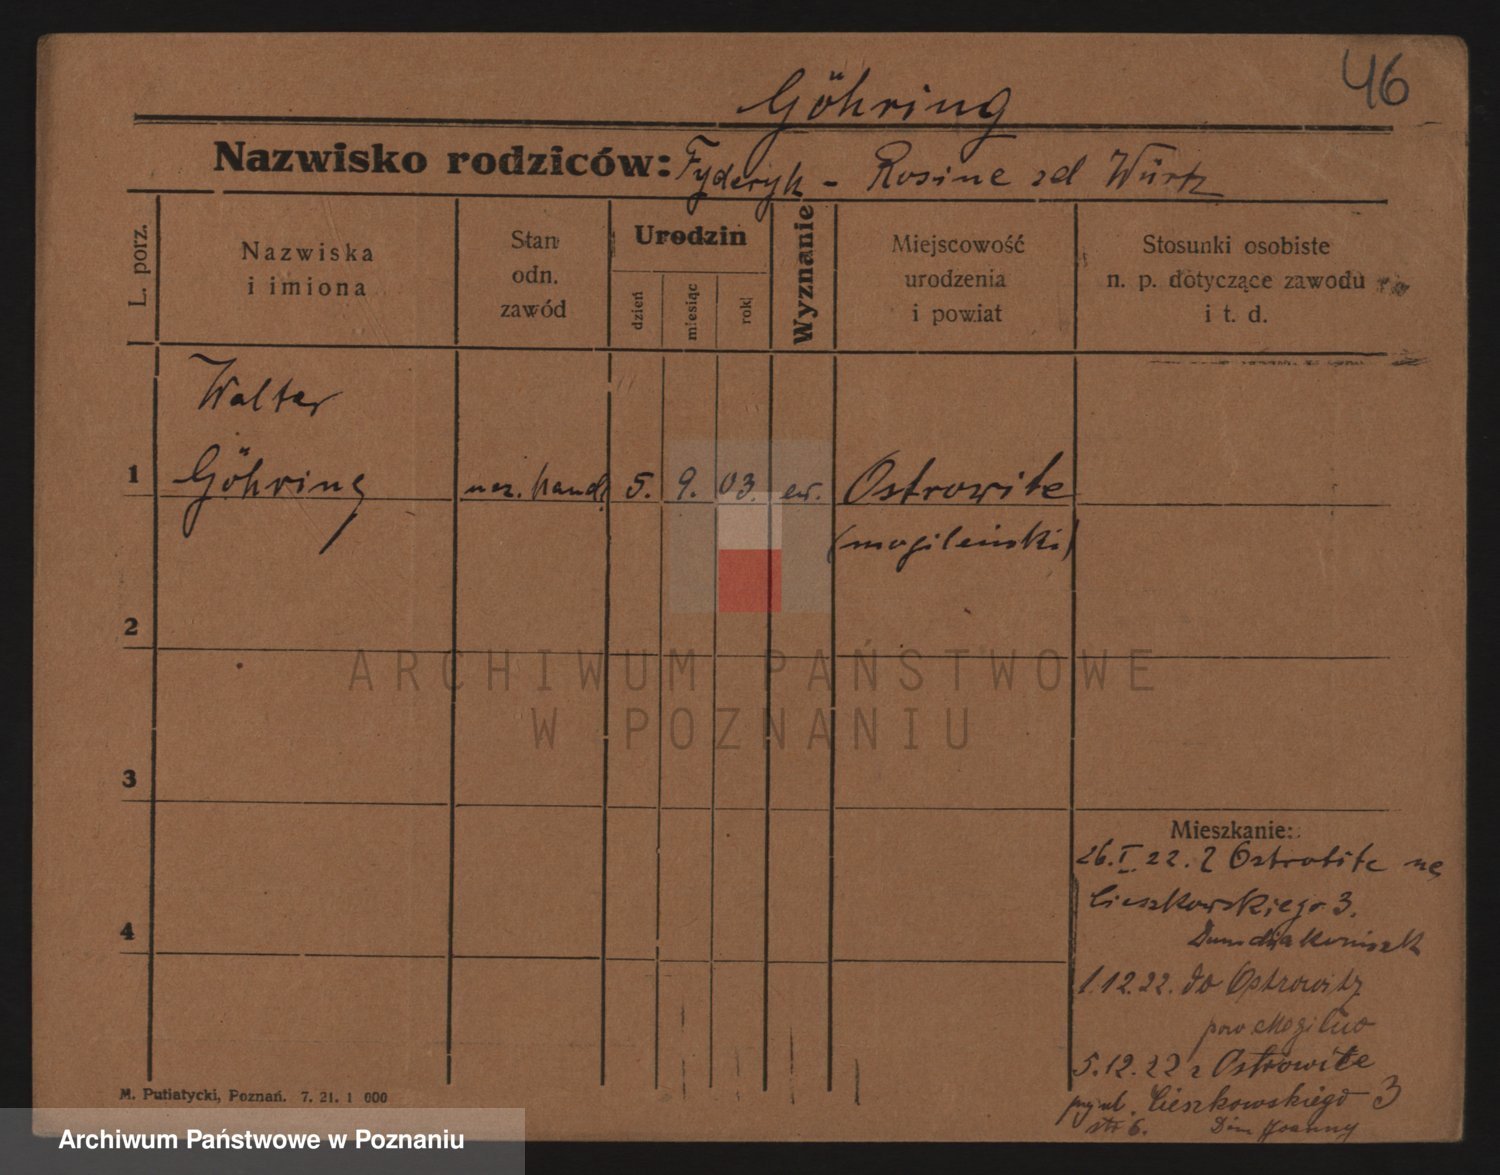 46
Göhring
Nazwisko rodziców: Fryderyk - Rosine zd Würtz
L. porz.
Nazwiska
i imiona
Stan
odn.
zawód
Urodzin
dzień
miesiąc
rok
Wyznanie
Miejscowość
urodzenia
i powiat
Stosunki osobiste
n. p. dotyczące zawodu
i t. d.
Walter
1 Göhring ucz. handl. 5. 9. 03. ew. Ostrowite
(mogileński)
2
ARCHIWUM PAŃSTWOWE
W POZNANIU
3
Mieszkanie:
26. I. 22. z Ostrowite na
Cieszkowskiego 3.
4
1.12.22. do Ostrowitz
pow Mogilno
5.12.22 z Ostrowite
przy ul. Cieszkowskiego 3
str 6.
M. Putiatycki, Poznań. 7. 21. 1 000
Archiwum Państwowe w Poznaniu